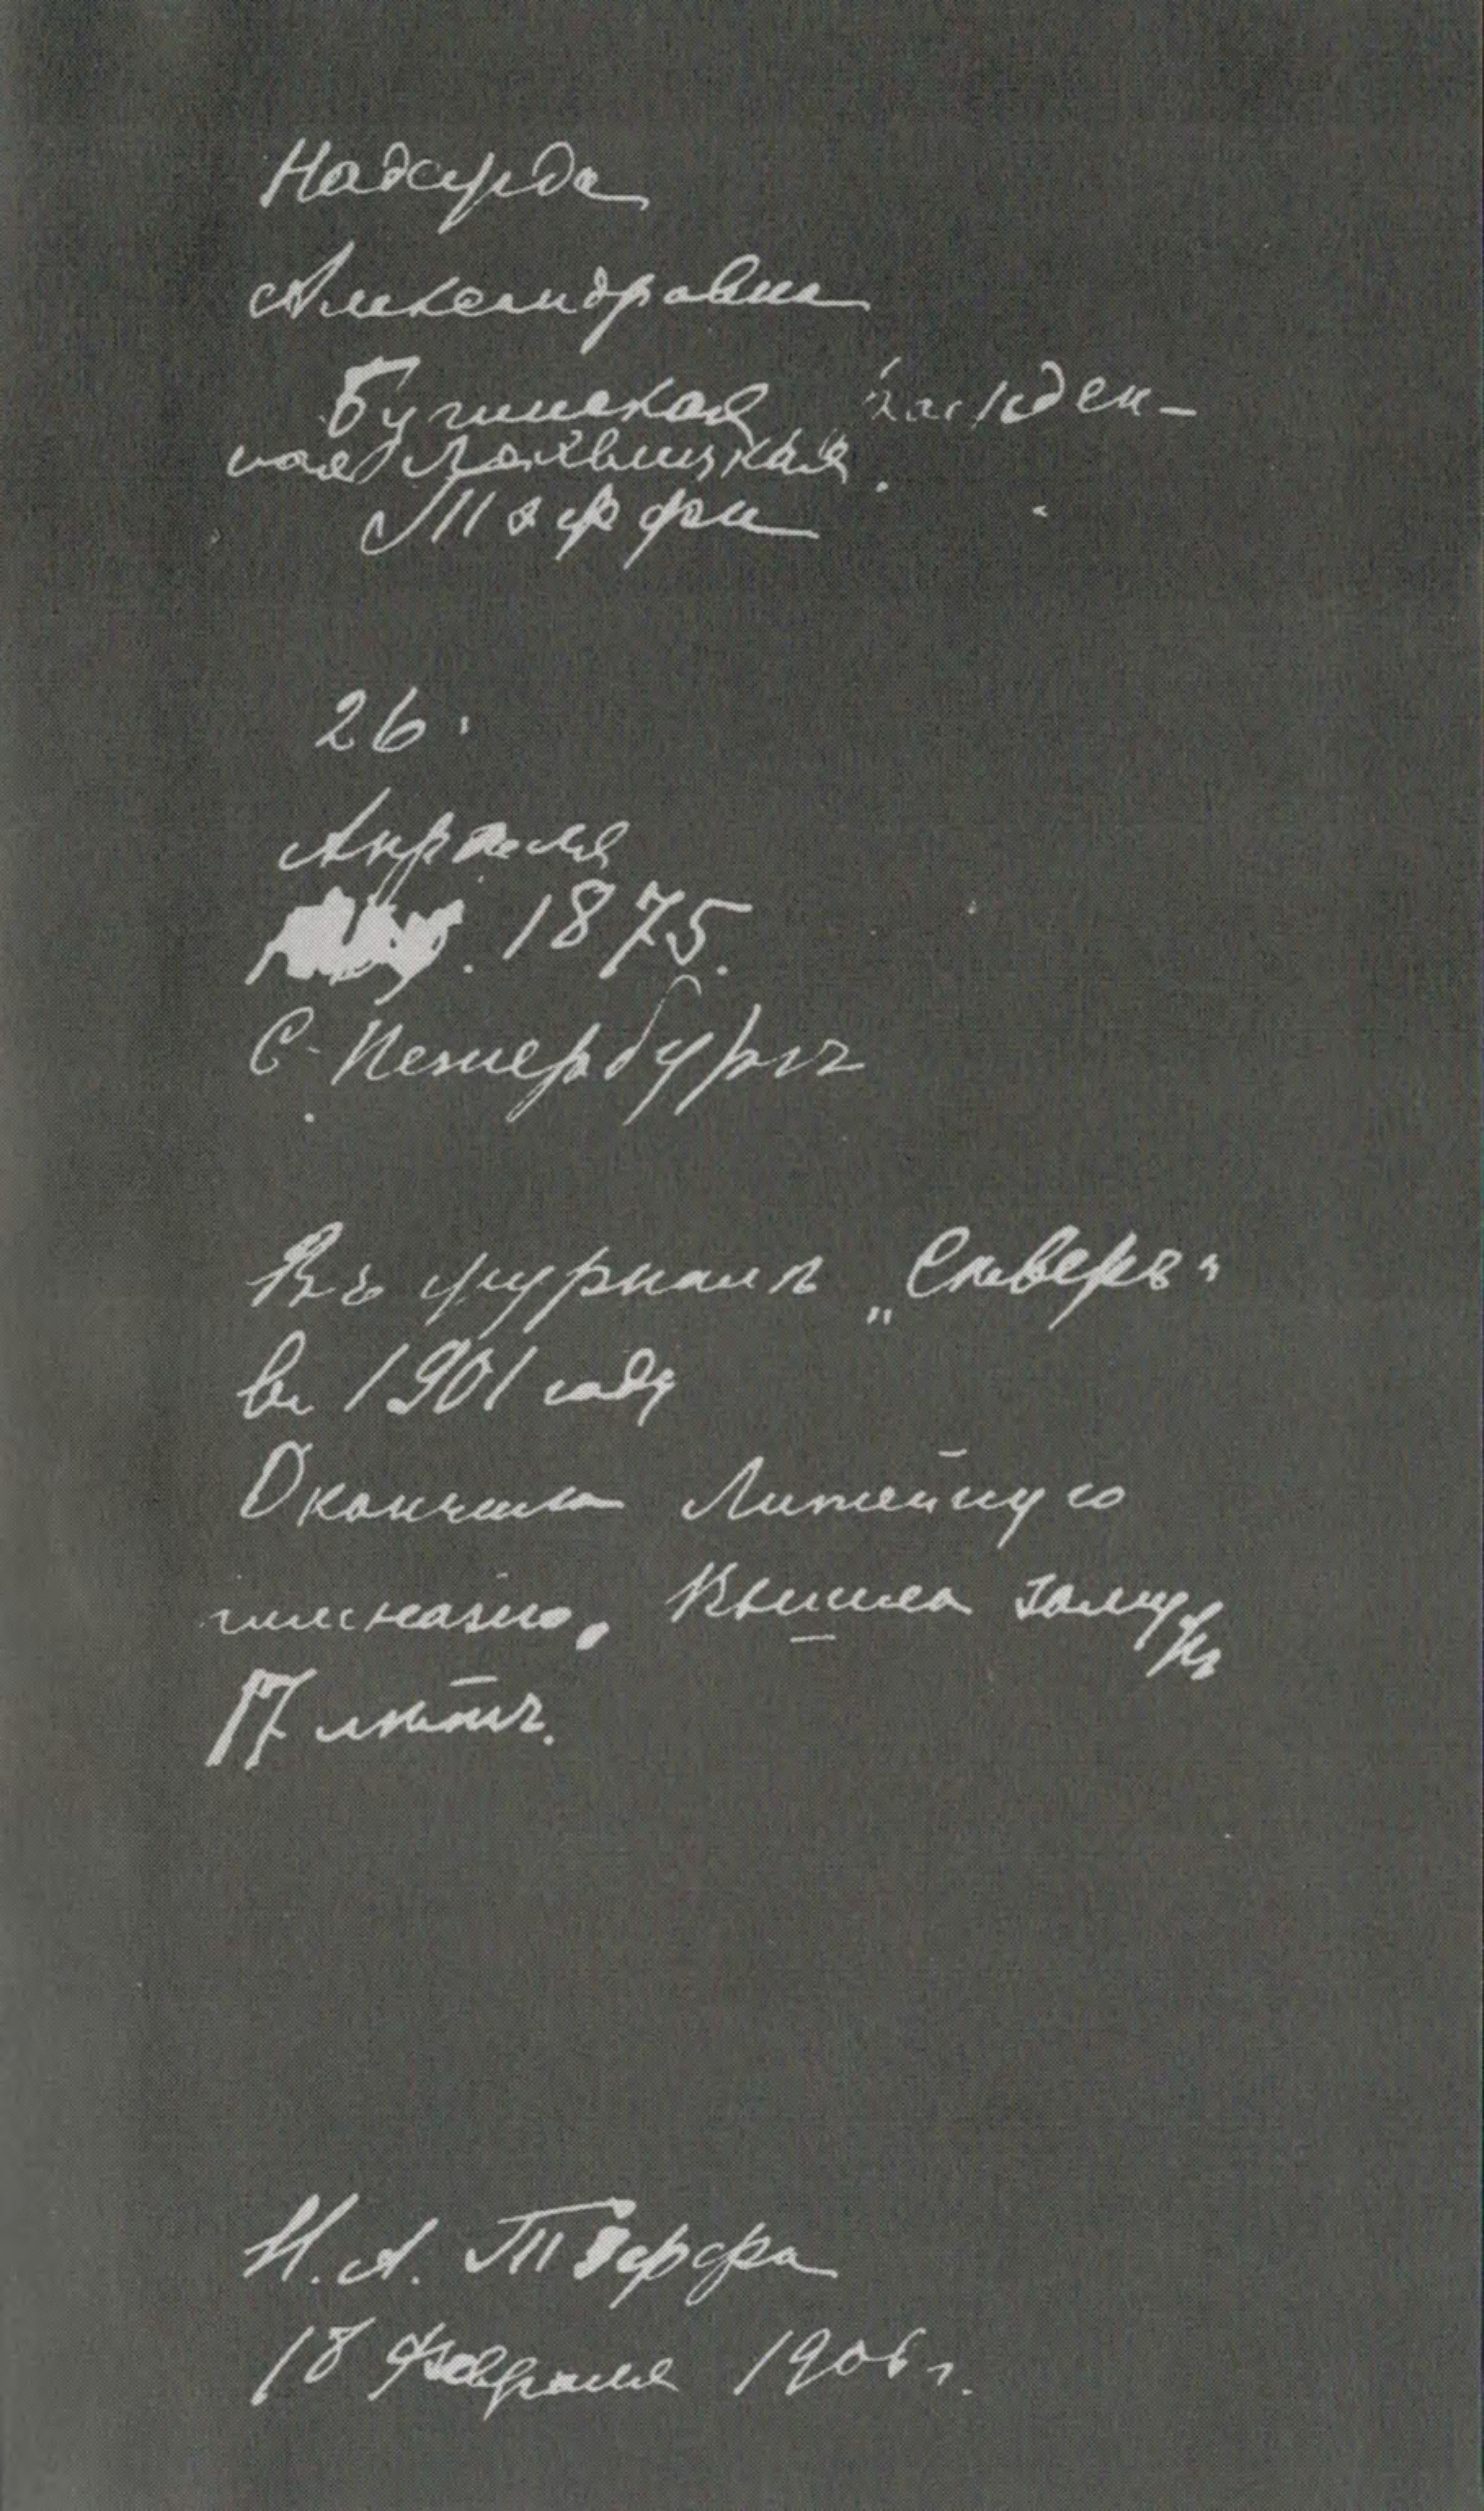 Надежда
Александровна
Бучинская урожден-
ная Лохвицкая.
Тэффи
26.
Апреля
1875.
С-Петербургъ
Въ журналѣ „Сѣверъ“
въ 1901 году
Окончила Литейную
гимназію, Вышла замужъ
17 лѣтъ.
Н. А. Тэффи
18 Февраля 1906 г.